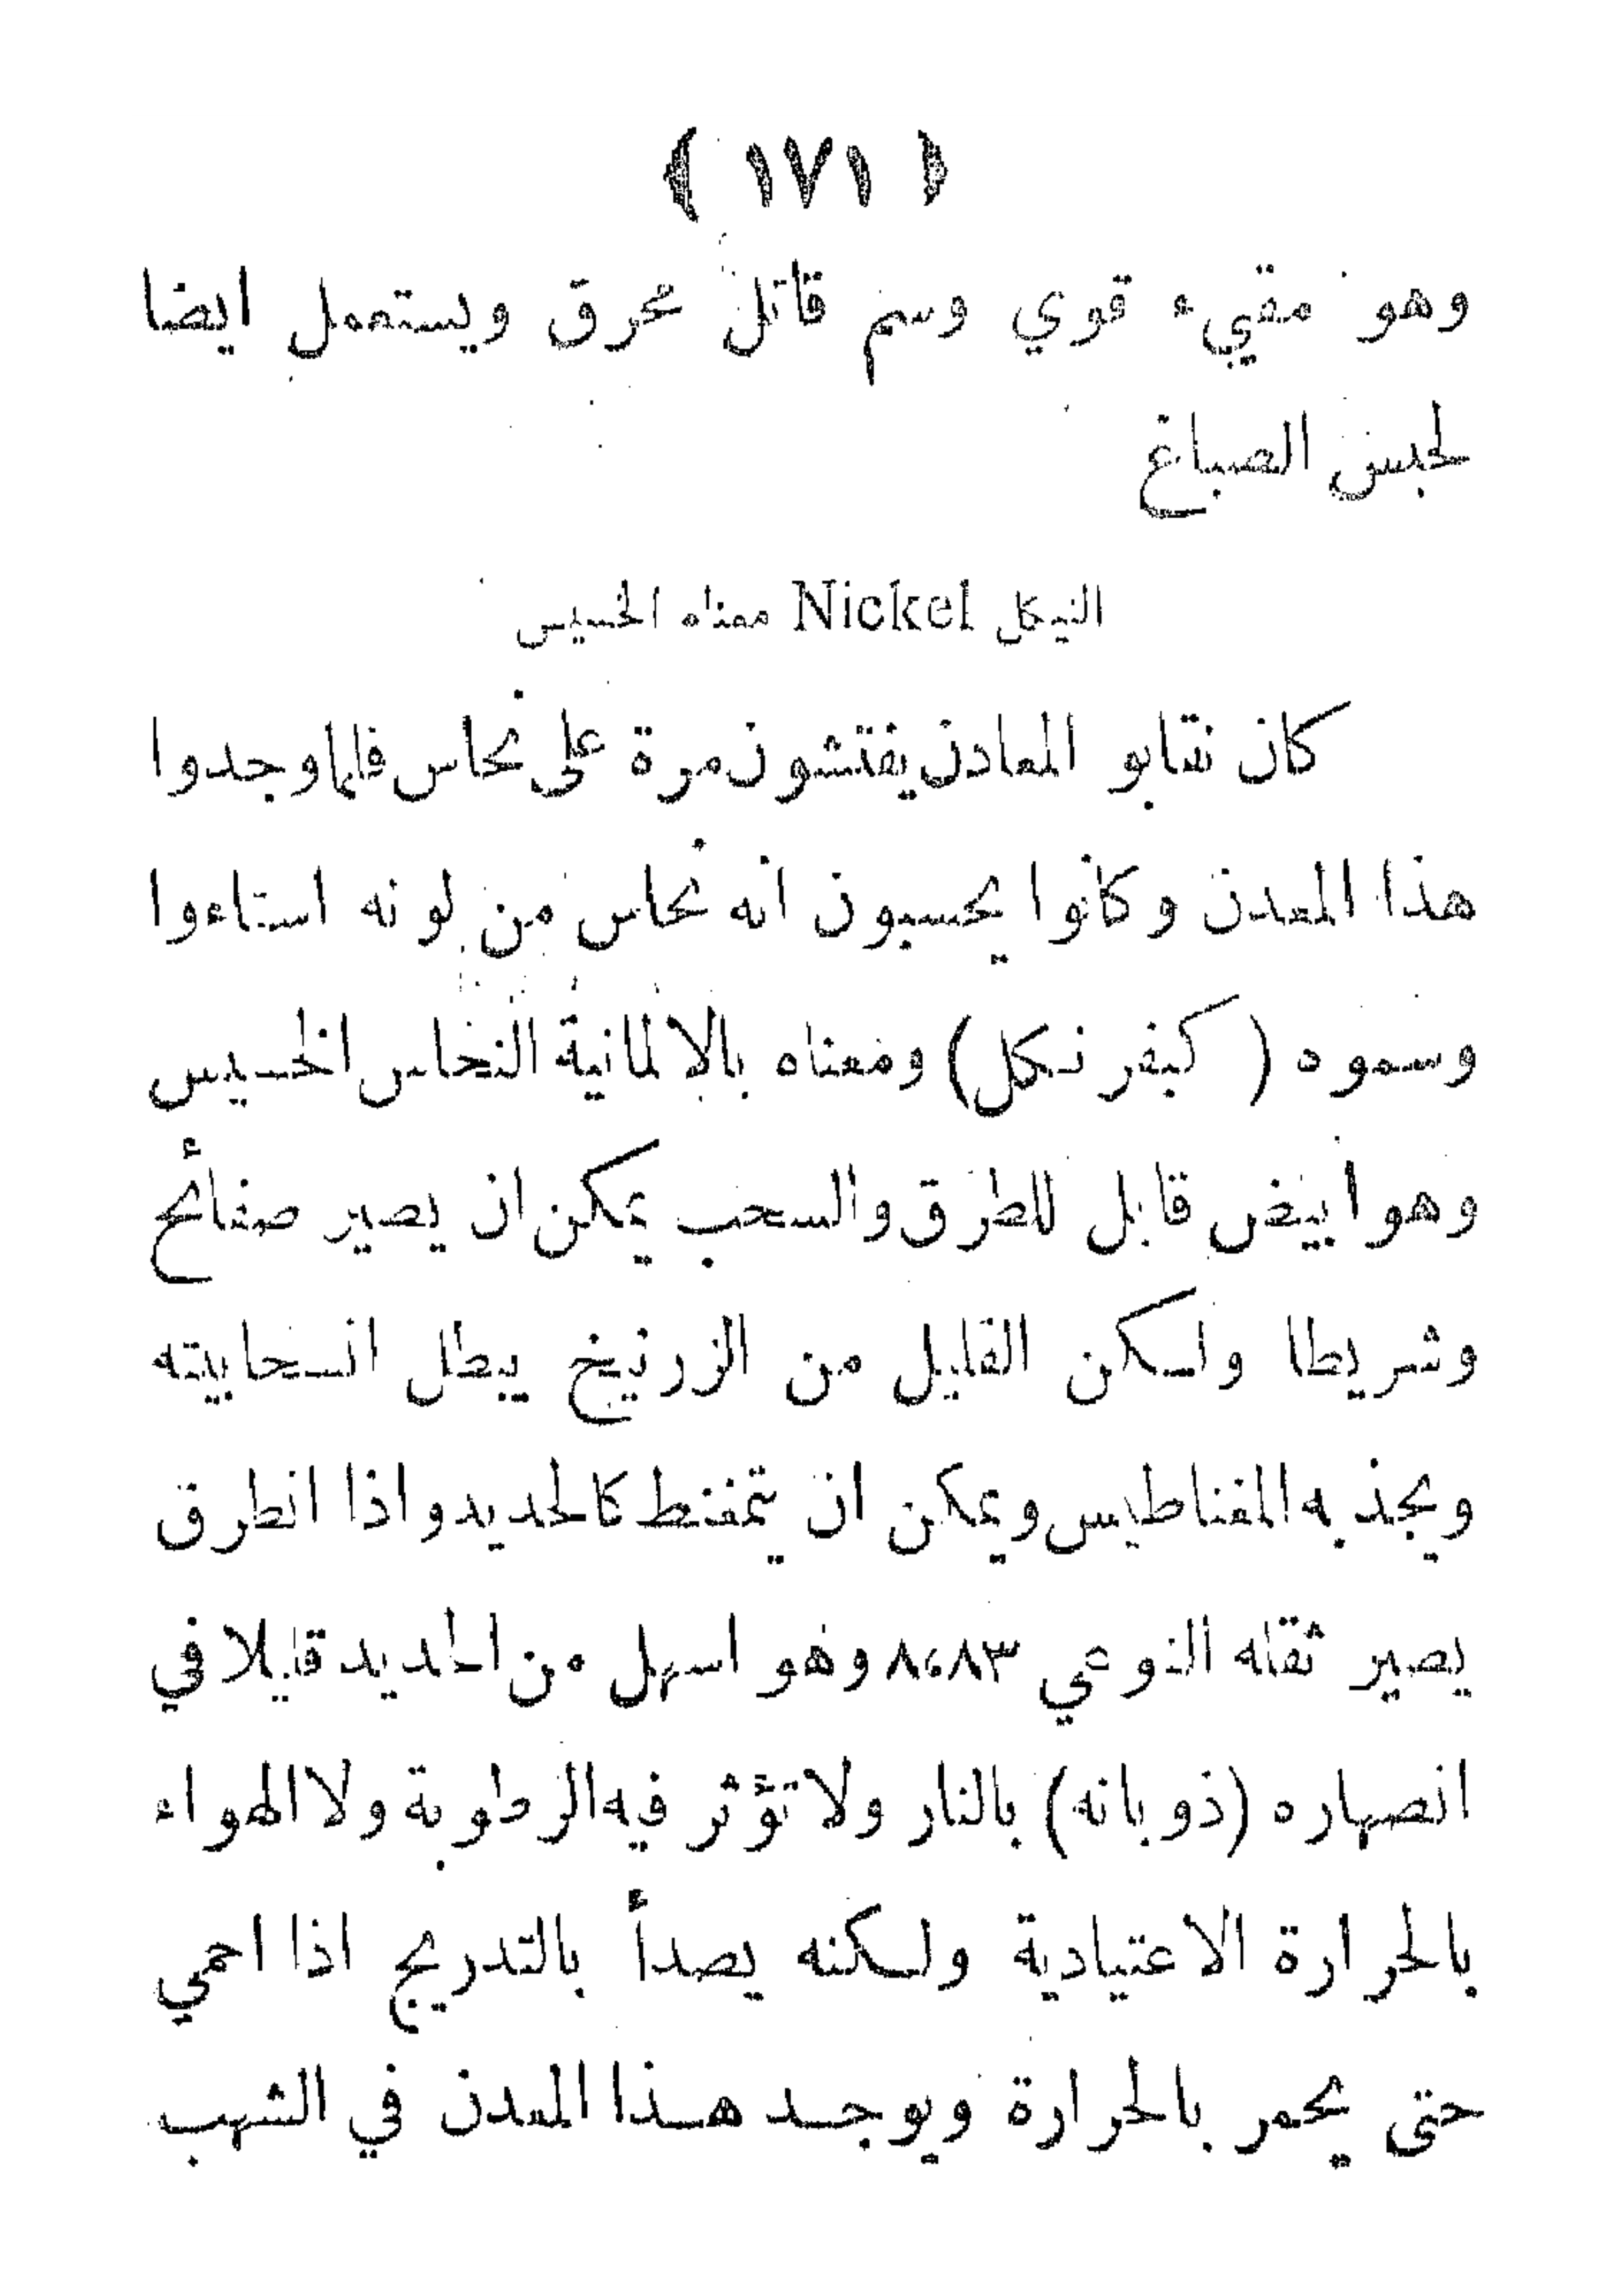 ﴿ ١٧١ ﴾
وهو مقيء قوي وسم قاتل محرق ويستعمل ايضا
لحبس الصباغ
النيكل Nickel معناه الخسيس
كان نقابو المعادن يفتشون مرة على نحاس فلما وجدوا
هذا المعدن وكانوا يحسبون انه نحاس من لونه استاءوا
وسموه ( كبفر نكل) ومعناه بالالمانية النحاس الخسيس
وهو ابيض قابل للطرق والسحب يمكن ان يصير صفائح
وشريطا ولكن القليل من الزرنيخ يبطل انسحابيته
ويجذبه المغناطيس ويمكن ان يتمغنط كالحديد واذا انطرق
يصير ثقله النوعي ٨،٨٣ وهو اسهل من الحديد قليلا في
انصهاره (ذوبانه) بالنار ولا تؤثر فيه الرطوبة ولا الهواء
بالحرارة الاعتيادية ولكنه يصدأ بالتدريج اذا احمي
حتى يحمر بالحرارة ويوجد هذا المعدن في الشهب